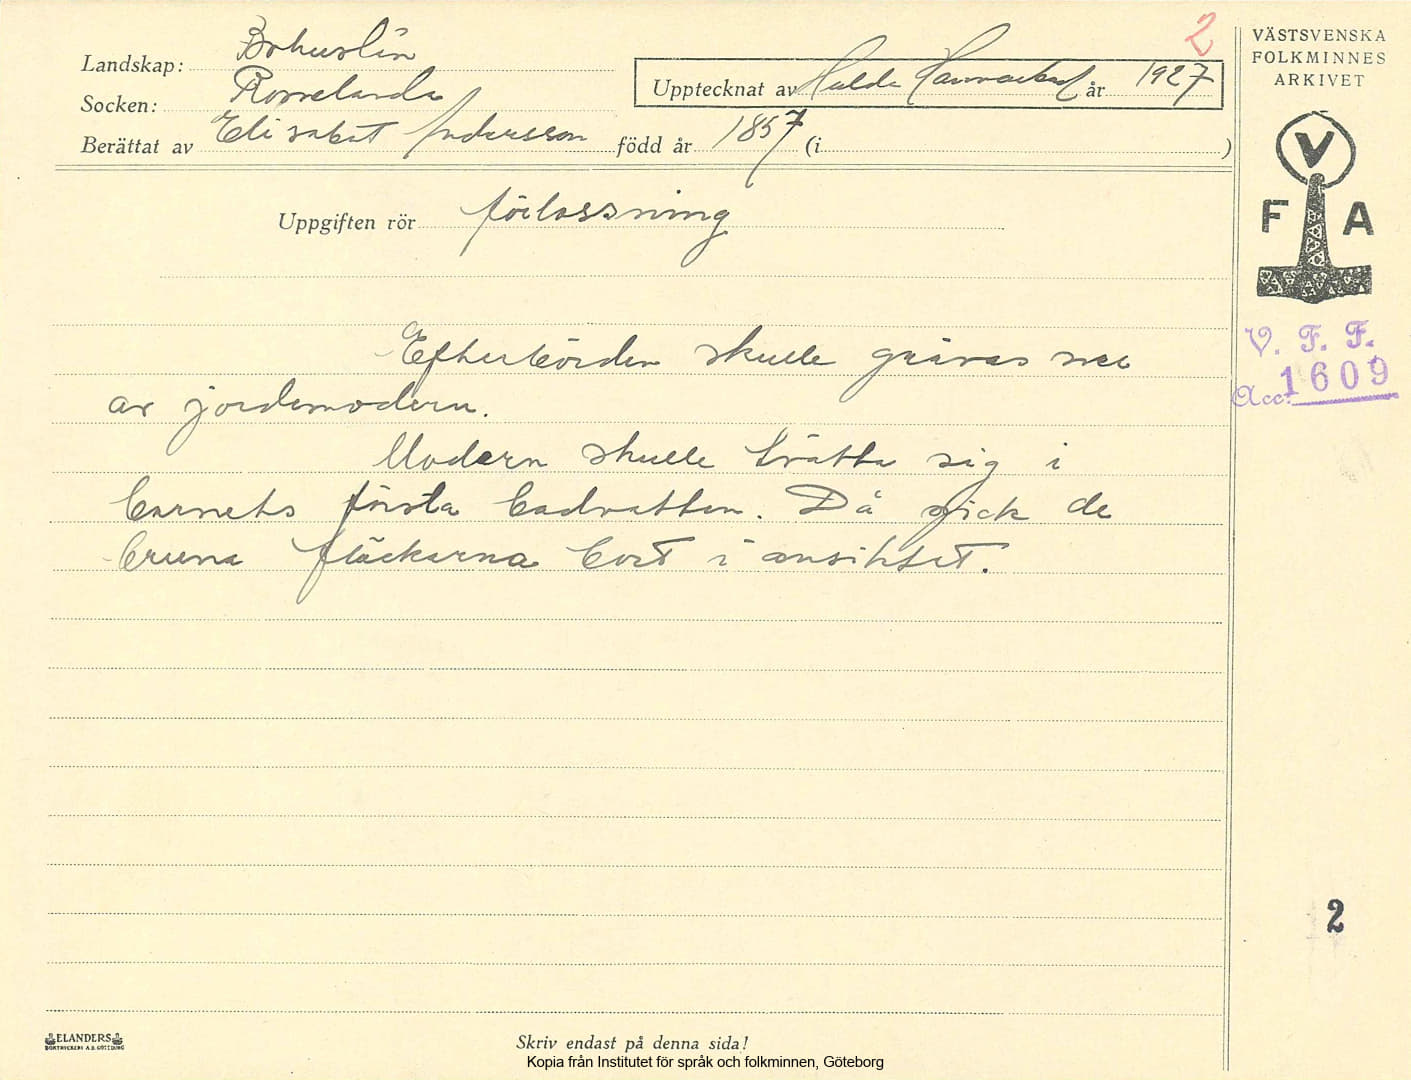 2
Landskap: Bohuslän
Socken: Romelanda
Upptecknat av Hulda Hammarbäck år 1927
Berättat av Elisabet Andersson född år 1857 (i )
VÄSTSVENSKA
FOLKMINNES
ARKIVET
V
F A
Uppgiften rör förlossning
V. F. F.
Acc: 1609
Efterbörden skulle grävas ner
av jordemodern.
Modern skulle tvätta sig i
barnets första badvatten. Då gick de
bruna fläckarna bort i ansiktet.
2
ELANDERS
BOKTRYCKERI A.B. GÖTEBORG
Skriv endast på denna sida!
Kopia från Institutet för språk och folkminnen, Göteborg